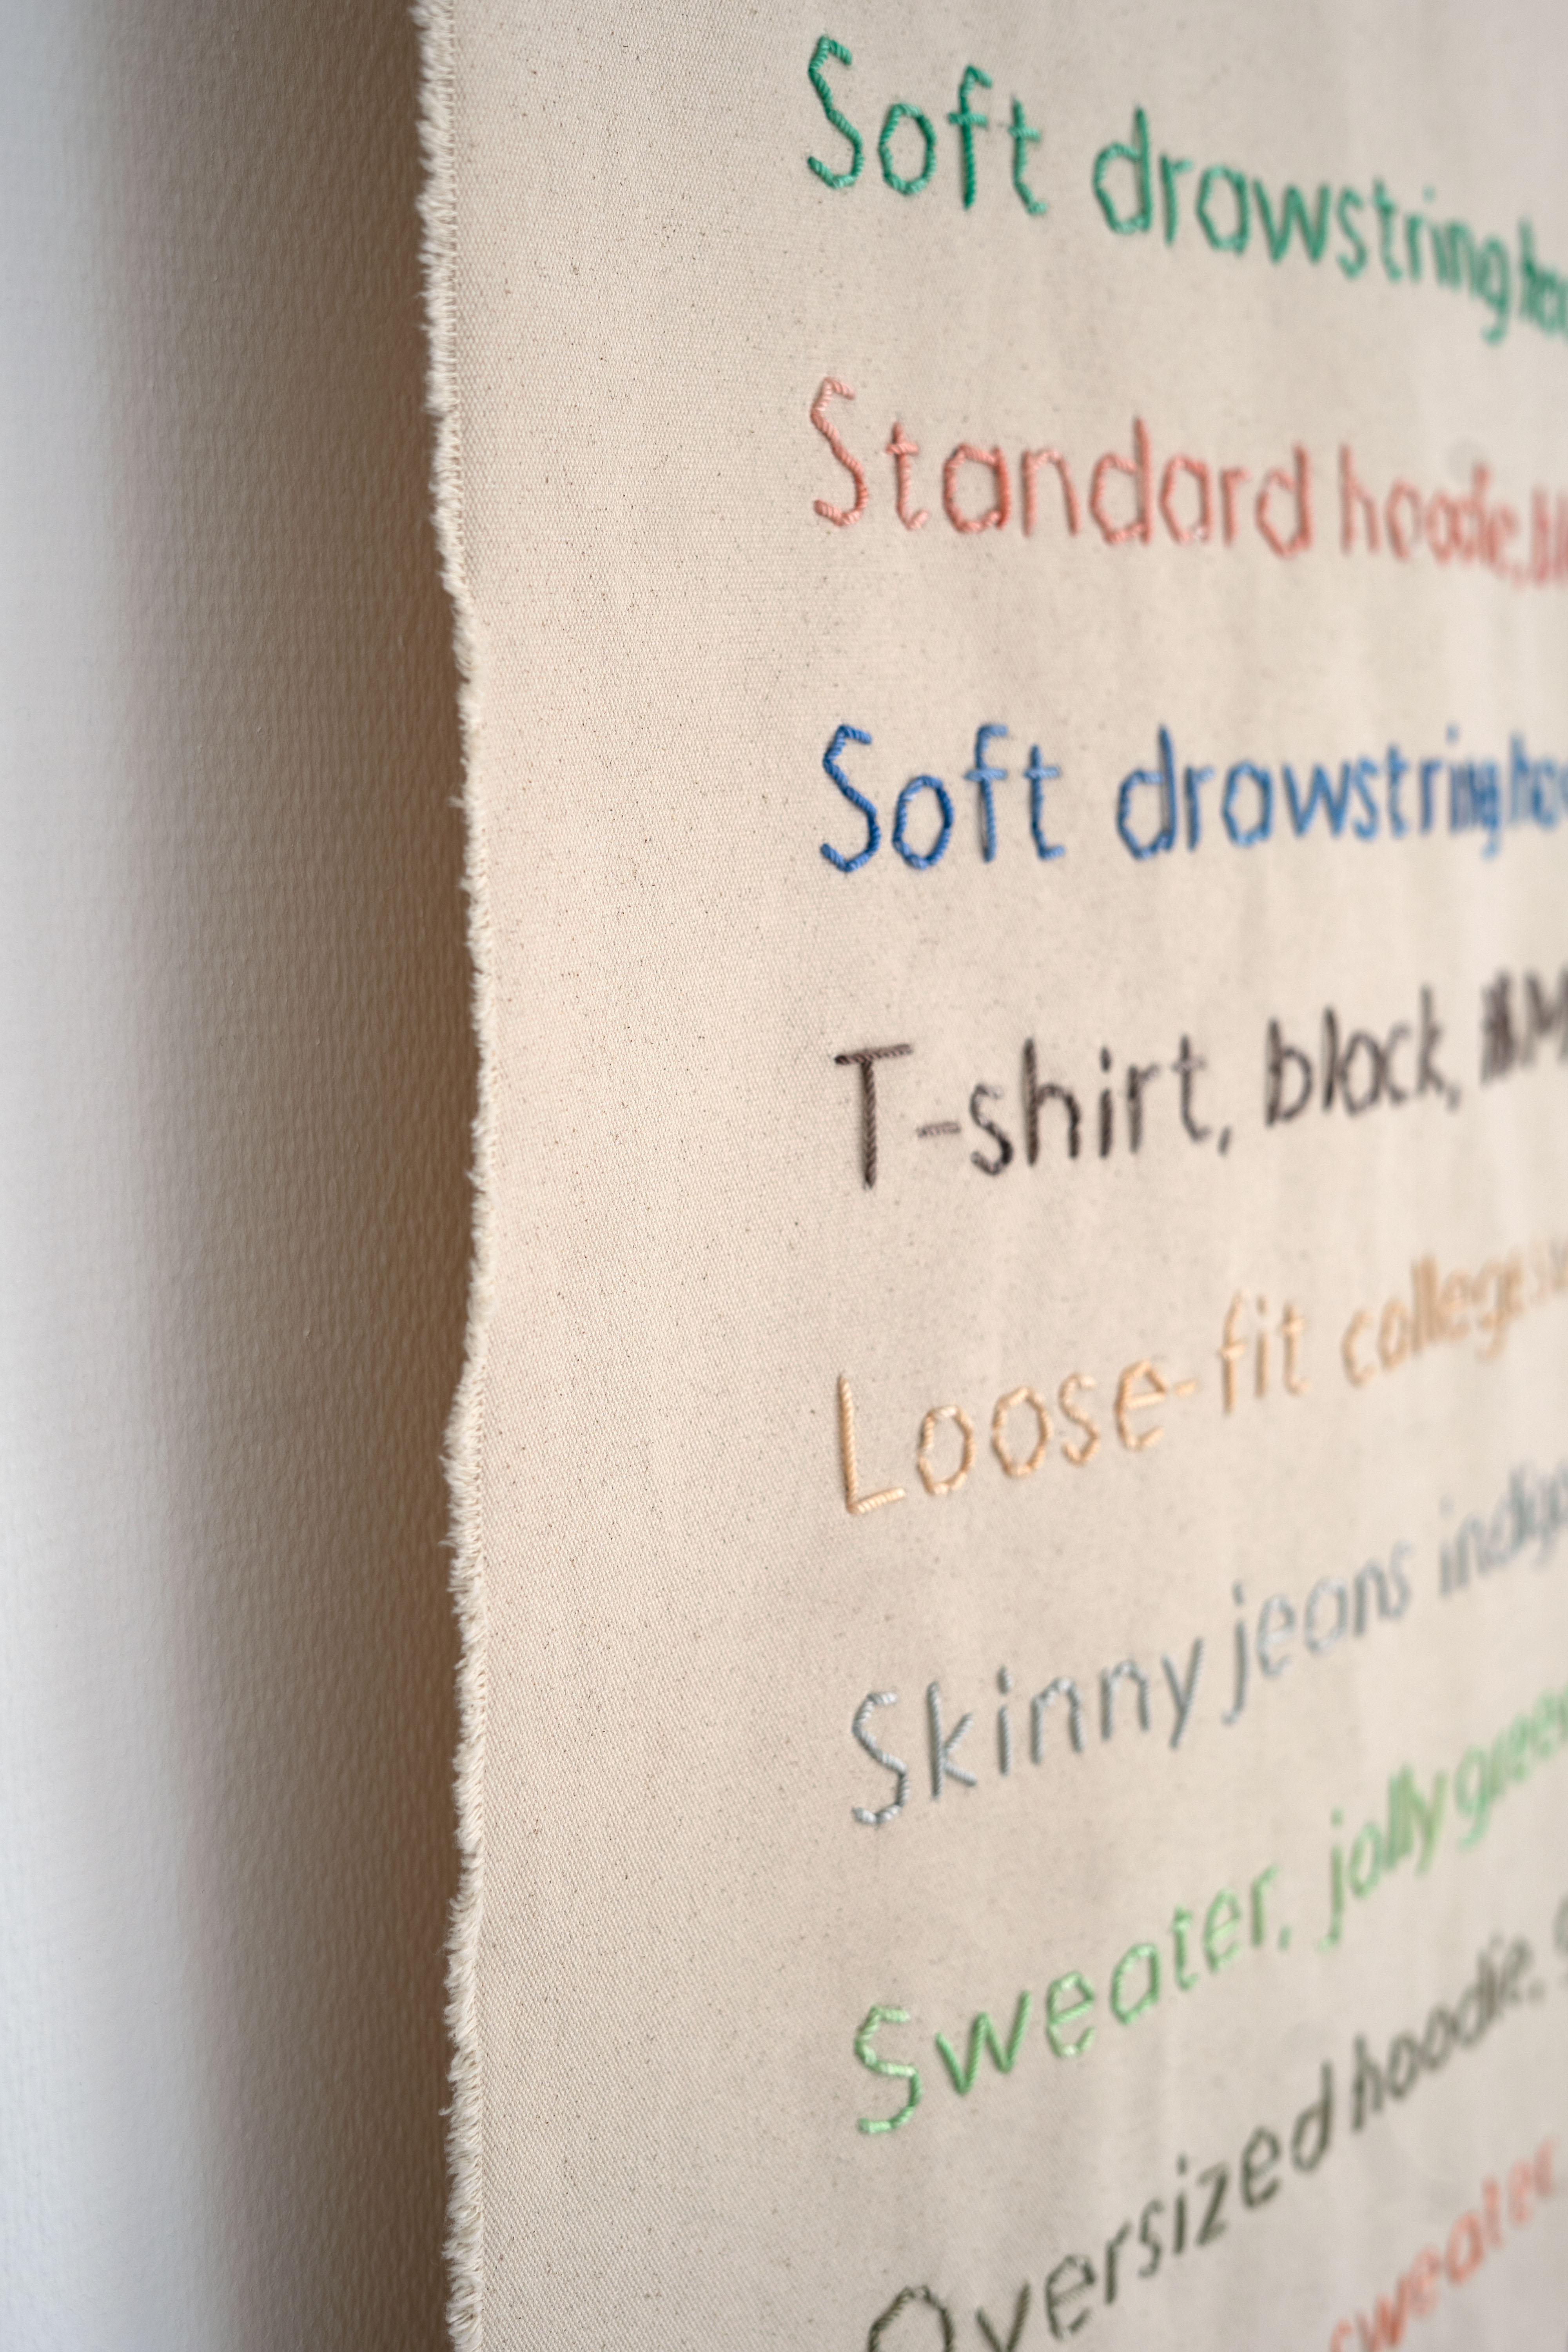 Soft drawstring
Standard hoodie,
Soft drawstring
T-shirt, black,
Loose-fit college
Skinny jeans indigo
Sweater, jolly green
Oversized hoodie,
sweater